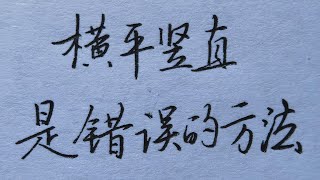 横平竖直
是错误的方法